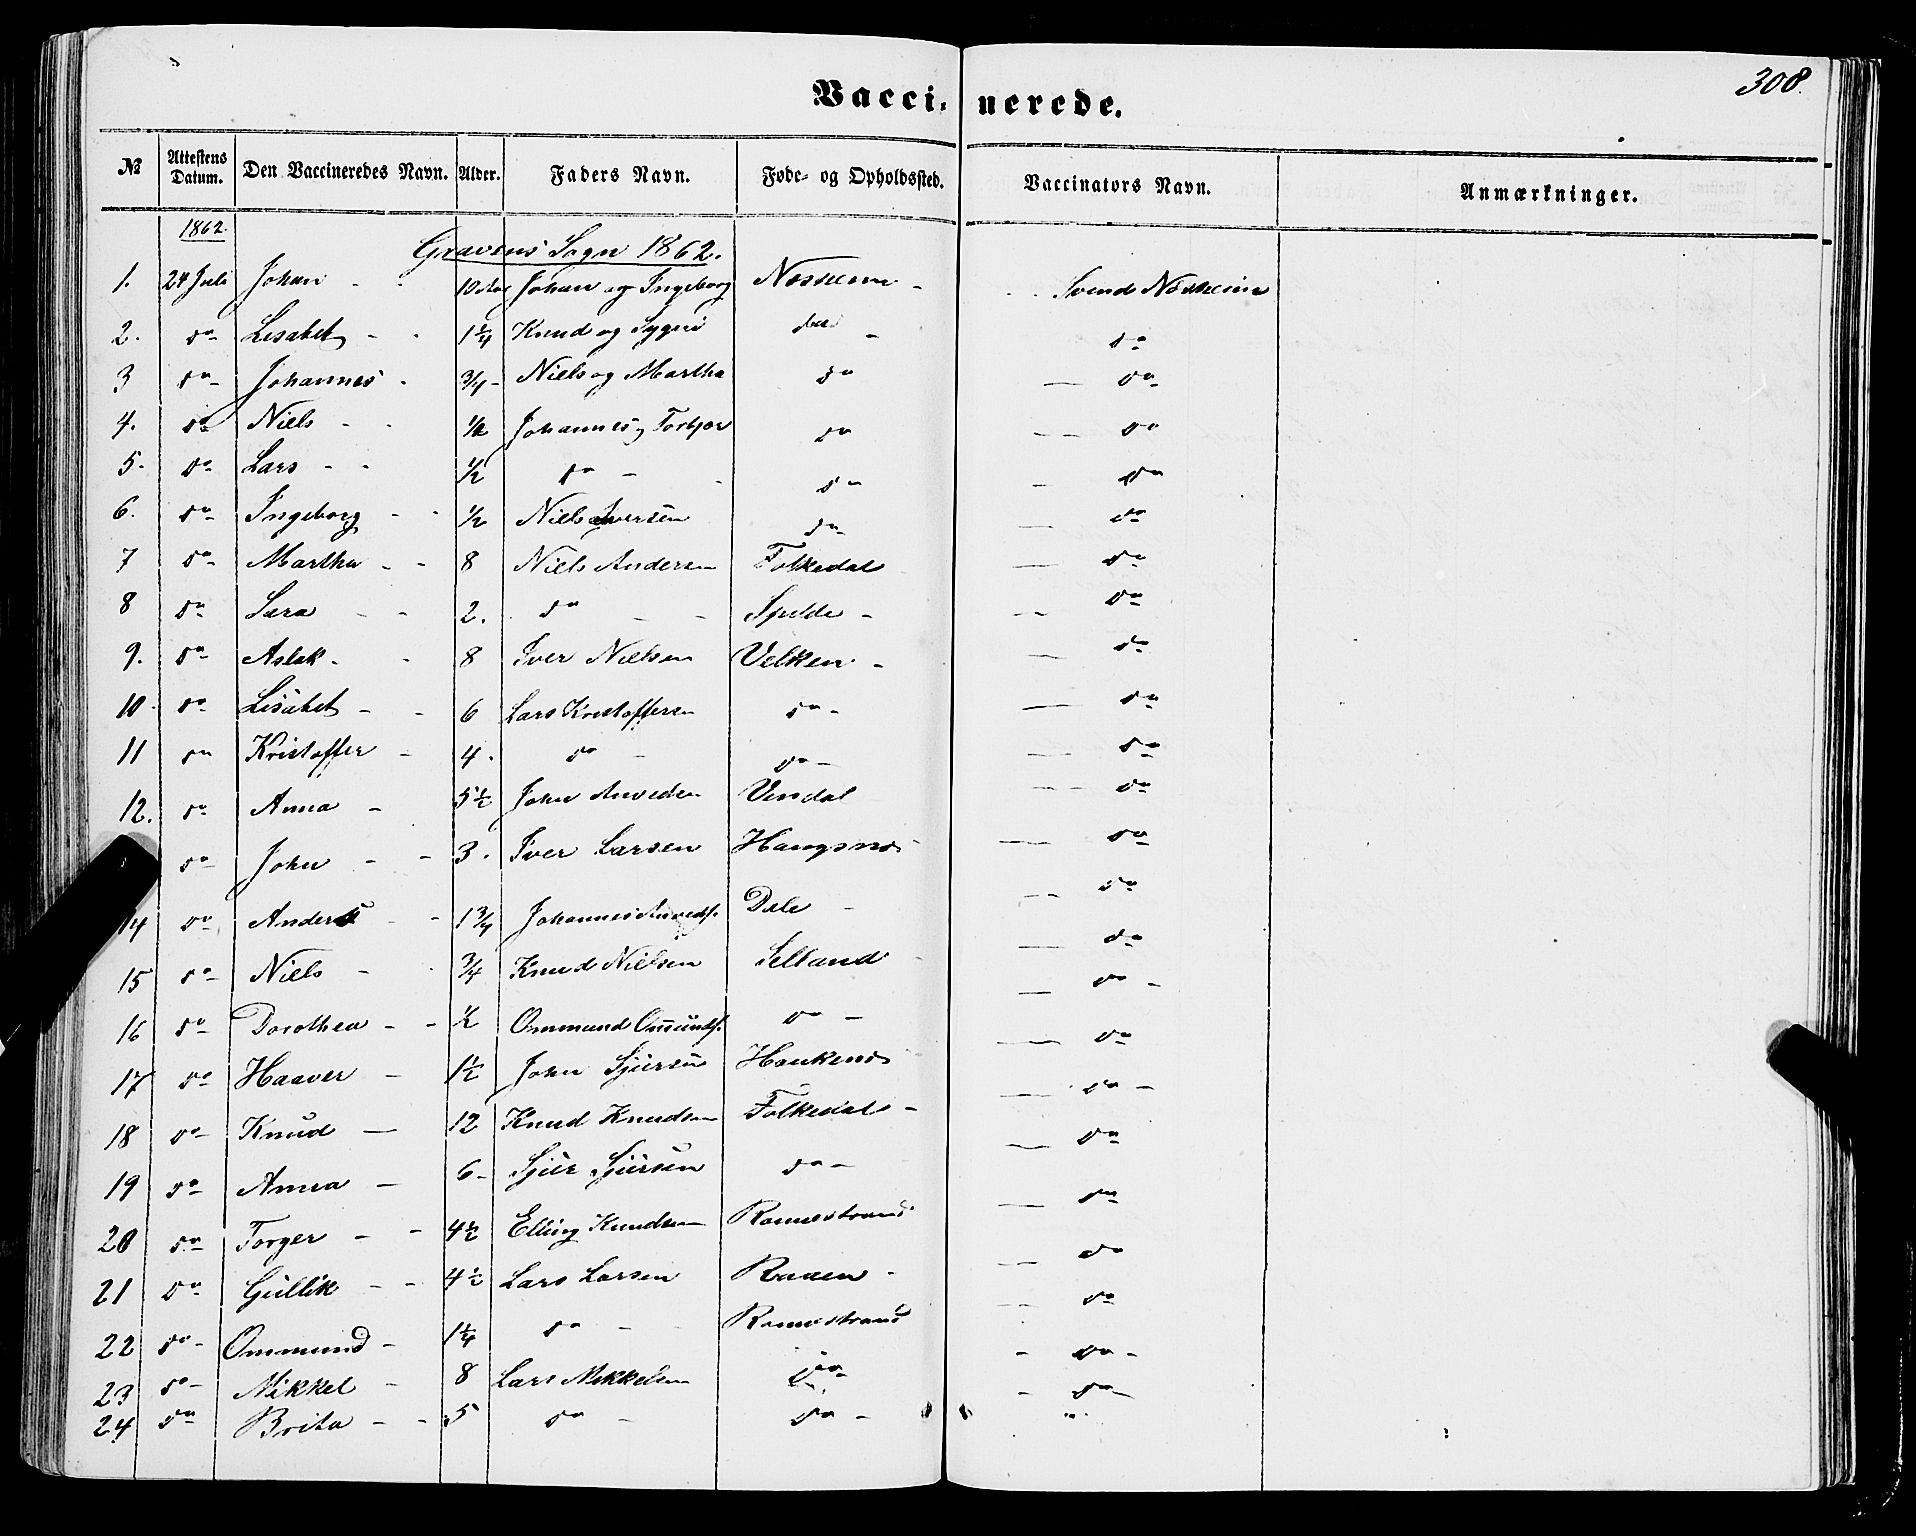 308.
Vacci- nerede.
№ | Attestens Datum. | Den Vaccineredes Navn. | Alder. | Faders Navn. | Føde- og Opholdssted. | Vaccinators Navn. | Anmærkninger.
1862.
Gravens Sogn 1862.
1. | 24 Juli | Johan | 10 | Johan og Ingeborg | Nesheim | Svend Nesheim
2. | do | Lisabet | 1 1/4 | Knud og Sygni | do | do
3 | do | Johannes | 3/4 | Niels og Martha | do | do
4. | do | Niels | 1/2 | Johannes og Torbjør | do | do
5. | do | Lars | 1/2 | do | do | do
6. | do | Ingeborg | 1/2 | Niels Iversen | do | do
7 | do | Martha | 8 | Niels Andersen | Folkedal | do
8 | do | Sera | 2. | do | Spilde | do
9. | do | Aslak | 8 | Iver Nielsen | Velken | do
10 | do | Lisabet | 6 | Lars Kristoffersen | do | do
11 | do | Kristoffer | 4. | do | do | do
12. | do | Anna | 5 1/2 | John Arvedsen | Vindal | do
do | John | 3. | Iver Larsen | Hangsnes | do
14 | do | Anders | 1 3/4 | Johannes Arvedss. | Dale | do
15 | do | Niels | 3/4 | Knud Nielsen | Selland | do
16 | do | Dorothea | 1/2 | Ommund Omundss. | do | do
17 | do | Haaver | 1 1/2 | John Sjursen | Haukenes | do
18 | do | Knud | 12 | Knud Knudsen | Folkedal | do
19 | do | Anna | 6 | Sjur Sjursen | do | do
20 | do | Torger | 4 1/2 | Elling Knudsen | Ramestrand | do
21 | do | Gullik | 4 1/2 | Lars Larsen | Raaen | do
22 | do | Ommund | 1 1/4 | do | Ramestrand | do
23 | do | Mikkel | 8 | Lars Mikkelsen | do | do
24 | do | Brita | 5 | do | do | do